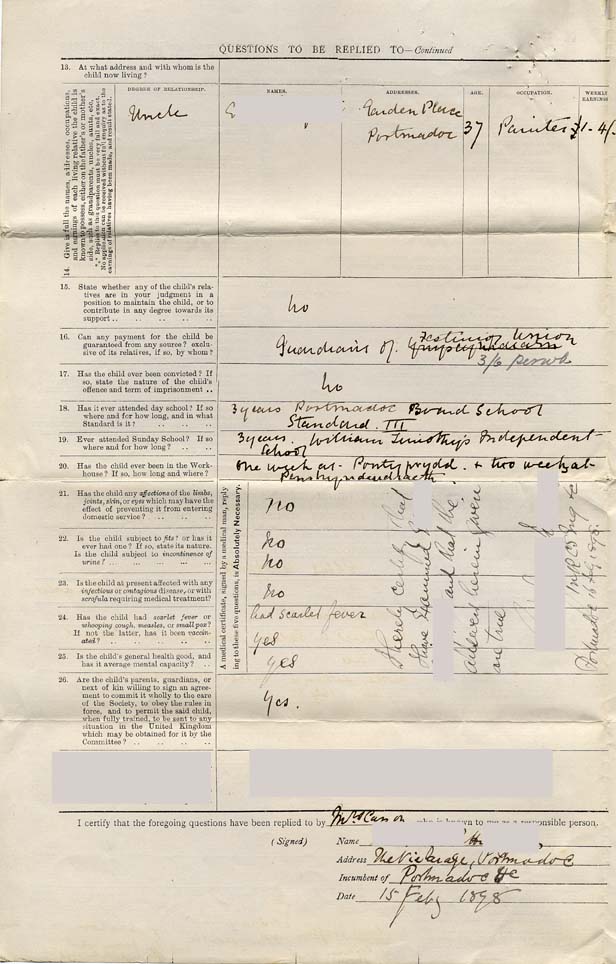 QUESTIONS TO BE REPLIED TO—Continued
13. At what address and with whom is the
child now living?
14. Give in full the names, addresses, occupations,
and earnings of each living relative the child is
known to possess, either on the father's or mother's
side, such as grandparents, uncles, aunts, etc.
*** Replies to this question must be very full and exact.
No application can be received without full enquiry as to the
earnings of relatives having been made, and result stated.
DEGREE OF RELATIONSHIP.
NAMES.
ADDRESSES.
AGE.
OCCUPATION.
WEEKLY
EARNINGS
Uncle
E
Garden Place
Portmadoc
37
Painter
£1-4/-
15. State whether any of the child's rela-
tives are in your judgment in a
position to maintain the child, or to
contribute in any degree towards its
support .. .. .. ..
no
16. Can any payment for the child be
guaranteed from any source? exclu-
sive of its relatives, if so, by whom?
Guardians of Festiniog Union
3/6 per wk
17. Has the child ever been convicted? If
so, state the nature of the child's
offence and term of imprisonment ..
no
18. Has it ever attended day school? If so
where and for how long, and in what
Standard is it? .. .. ..
3 years Portmadoc Board School
Standard III
19. Ever attended Sunday School? If so
where and for how long? .. ..
3 years. William Timothy's Independent
School
20. Has the child ever been in the Work-
house? If so, how long and where?
One week at Pontypridd. + two week at
Penrhyndeudraeth
A medical certificate, signed by a medical man, reply
ing to these five questions, is Absolutely Necessary.
21. Has the child any affections of the limbs,
joints, skin, or eyes which may have the
effect of preventing it from entering
domestic service? .. .. ..
no
22. Is the child subject to fits? or has it
ever had one? If so, state its nature.
Is the child subject to incontinence of
urine? .. .. .. ..
no
no
23. Is the child at present affected with any
infectious or contagious disease, or with
scrofula requiring medical treatment?
no
24. Has the child had scarlet fever or
whooping cough, measles, or small pox?
If not the latter, has it been vaccin-
ated? .. .. .. ..
had scarlet fever
yes
25. Is the child's general health good, and
has it average mental capacity? ..
yes
I hereby certify that
I have examined
and that the
answers herein given
are true
MRCS Eng &c
Portmadoc
26. Are the child's parents, guardians, or
next of kin willing to sign an agree-
ment to commit it wholly to the care
of the Society, to obey the rules in
force, and to permit the said child,
when fully trained, to be sent to any
situation in the United Kingdom
which may be obtained for it by the
Committee? .. .. .. ..
Yes.
I certify that the foregoing questions have been replied to by who is known to me as a responsible person.
(Signed) Name
Address The Vicarage, Portmadoc
Incumbent of Portmadoc
Date 15 Feby 1898